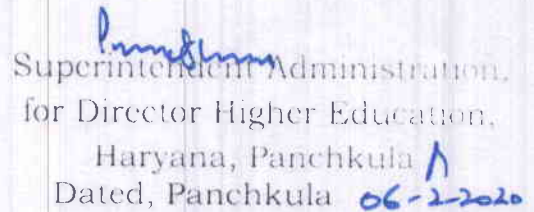 Superintendent Administration,
for Director Higher Education,
Haryana, Panchkula
Dated, Panchkula 06-2-2020